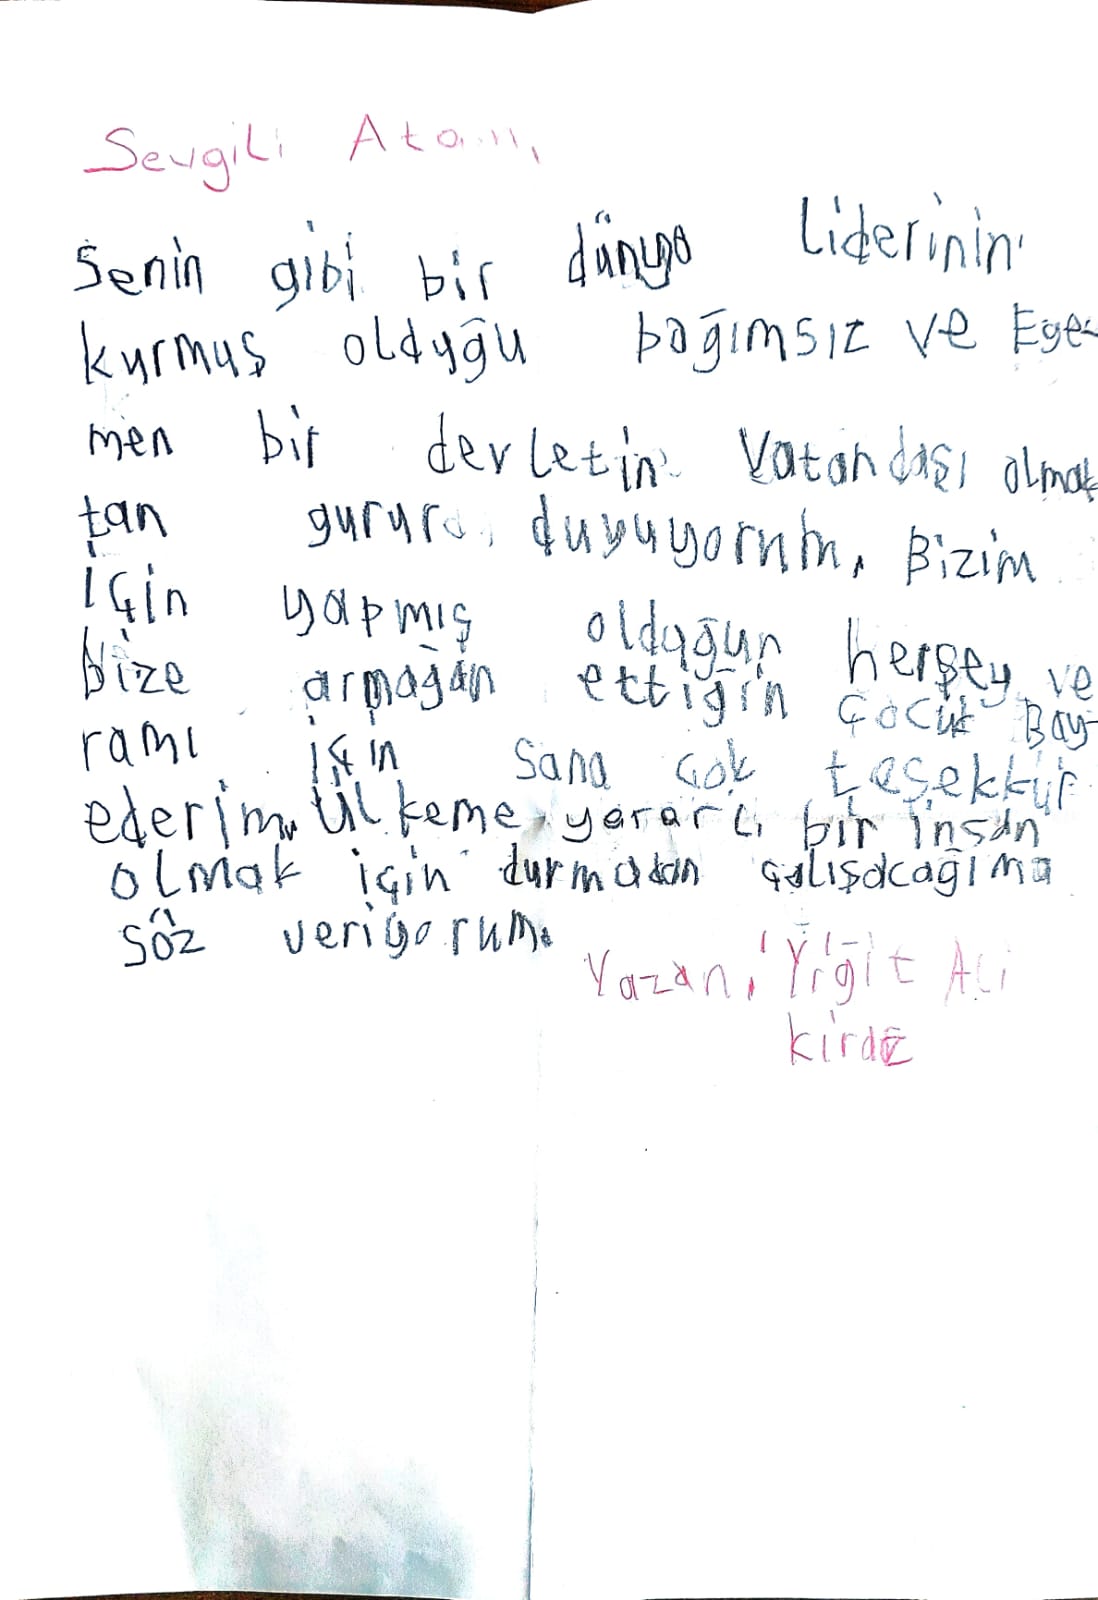 Sevgili Atam,
Senin gibi bir dünya liderinin
kurmuş olduğu bağımsız ve Ege-
men bir devletin Vatandaşı olmak
tan gurur duyuyorum, Bizim
için yapmış olduğun herşey ve
bize armağan ettiğin çocuk Bay-
ramı için sana çok teşekkür
ederim. Ülkeme yararlı bir insan
olmak için durmadan çalışacağıma
söz veriyorum.
Yazan, Yiğit Ali